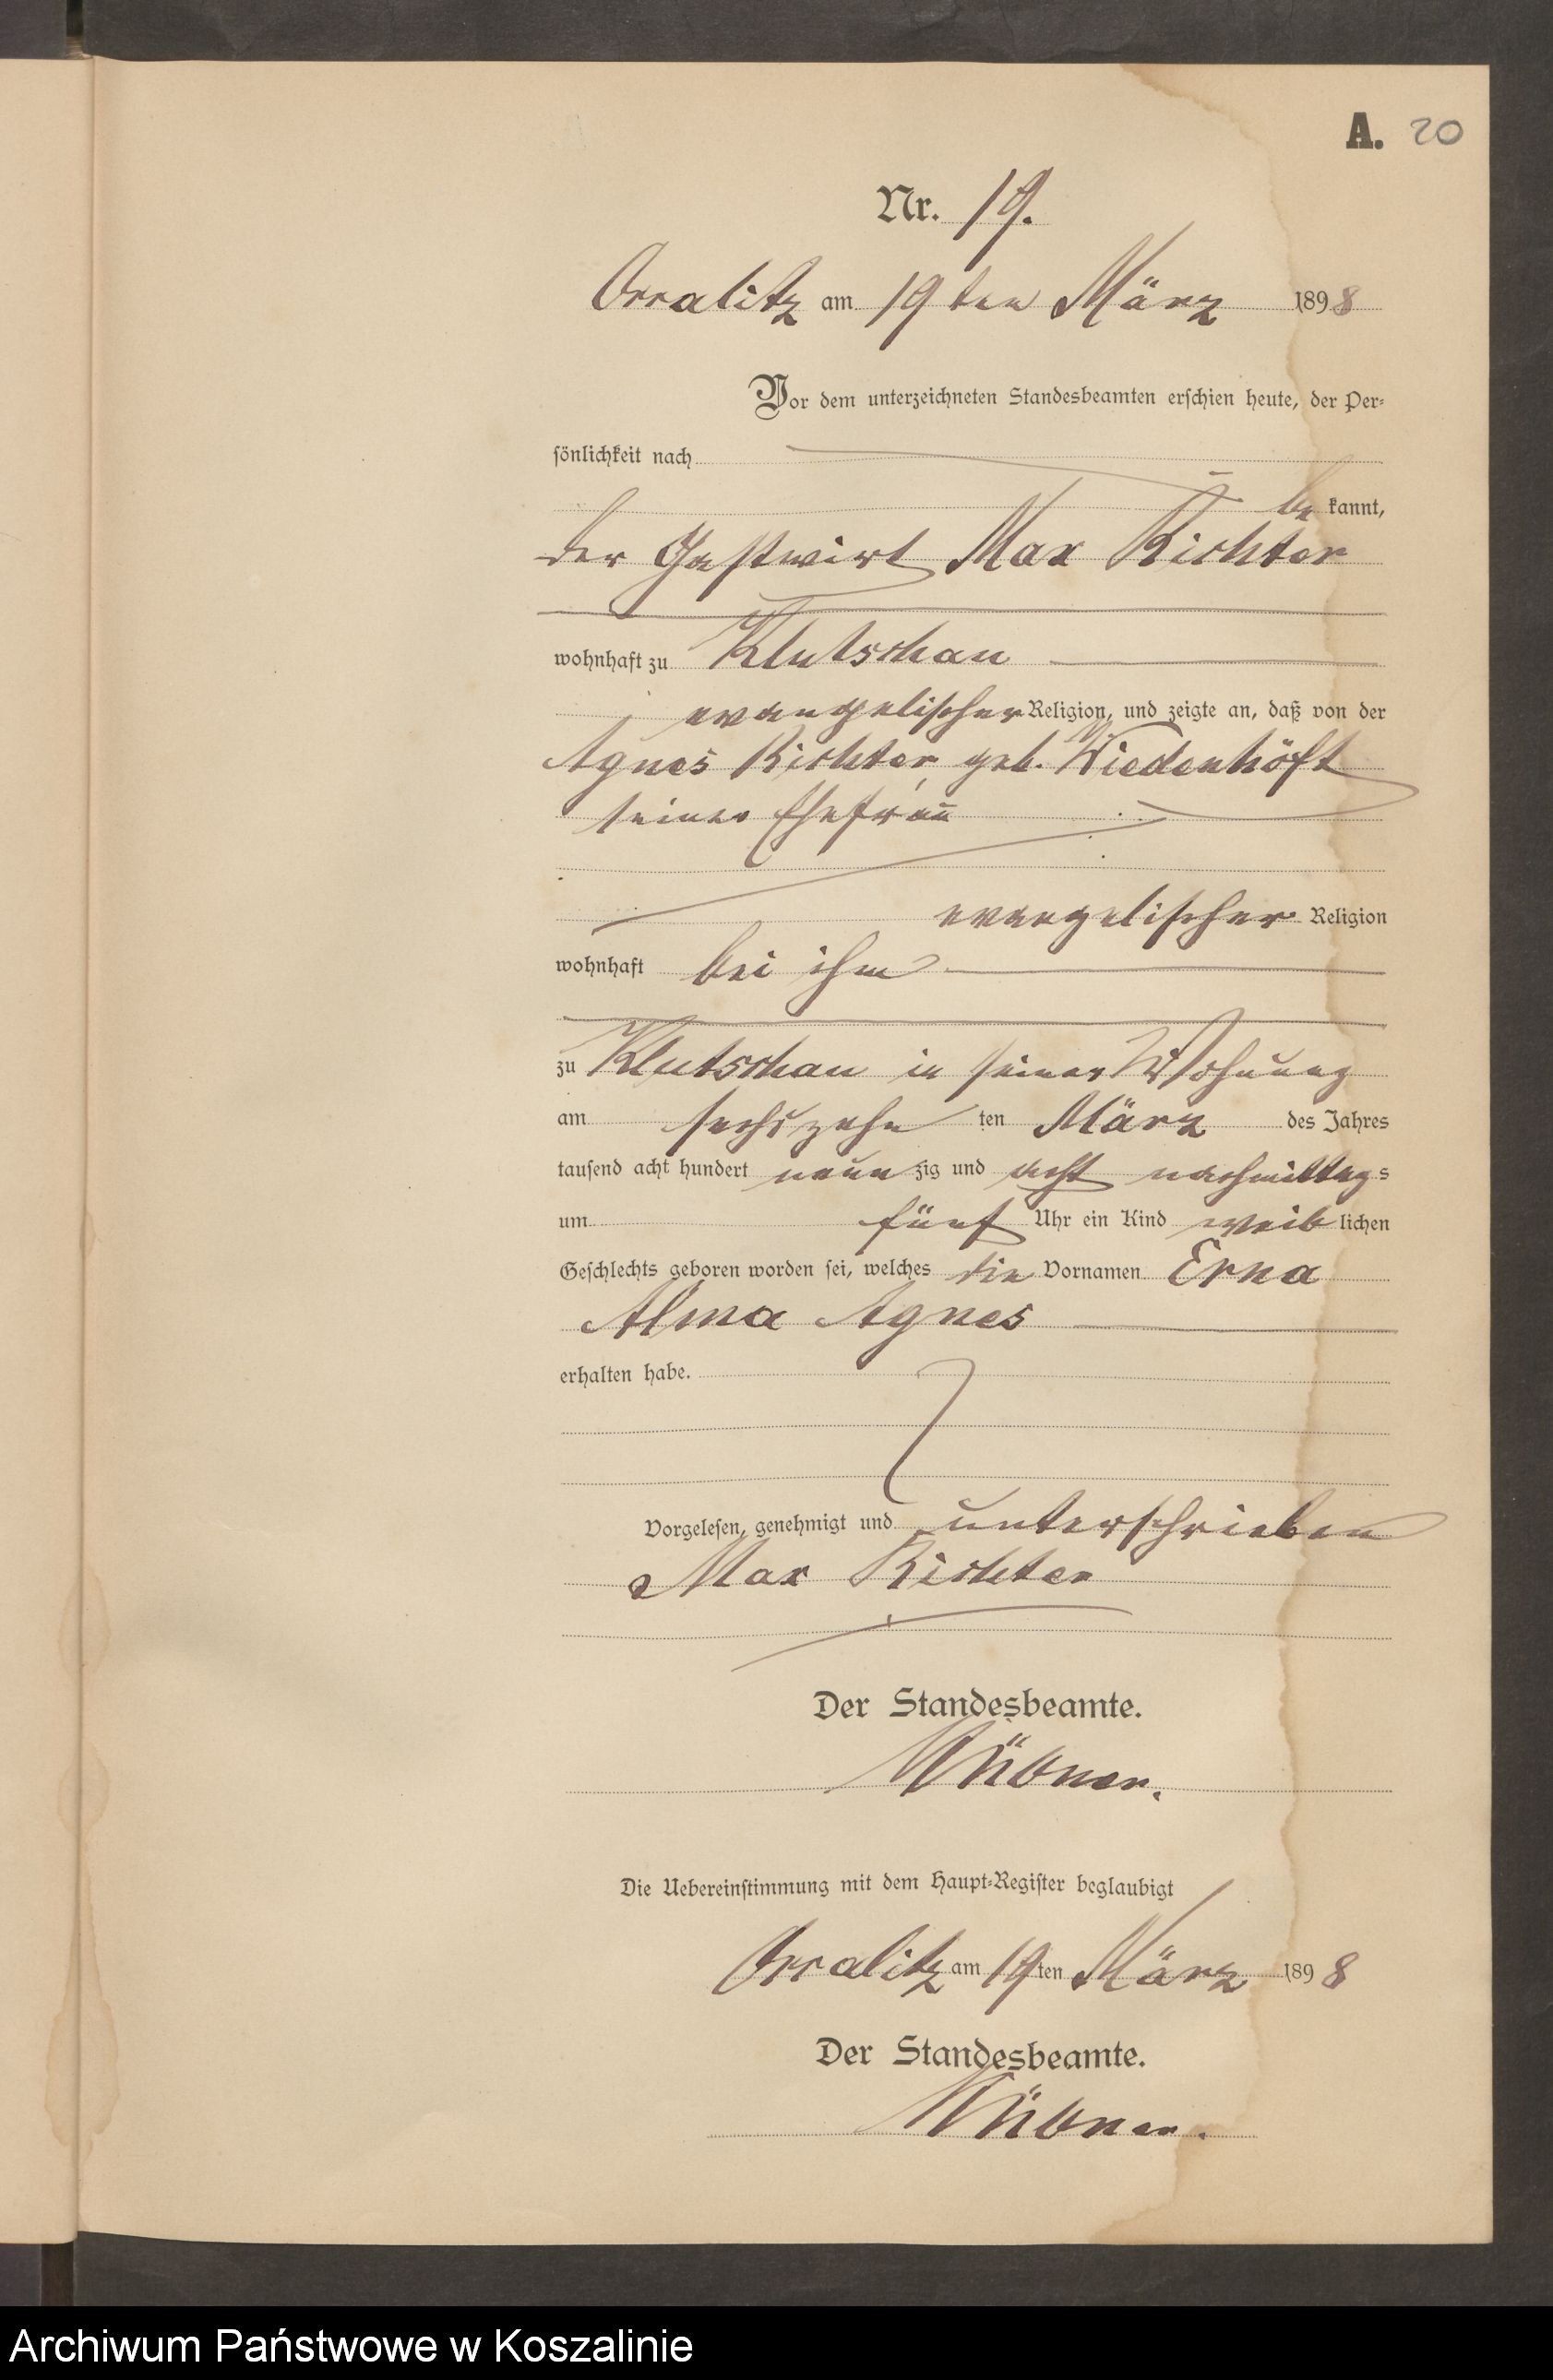 A. 20
Nr. 19.
Occalitz am 19ten März 1898
Vor dem unterzeichneten Standesbeamten erschien heute, der Per-
sönlichkeit nach
be kannt,
der Gastwirt Max Richter
wohnhaft zu Klutschau
evangelischer Religion, und zeigte an, daß von der
Agnes Richter, geb. Wiedenhöft
seiner Ehefrau
evangelischer Religion
wohnhaft bei ihm
zu Klutschau in seiner Wohnung
am sechszehn ten März des Jahres
tausend acht hundert neun zig und acht nachmittags
um fünf Uhr ein Kind weiblichen
Geschlechts geboren worden sei, welches die Vornamen Erna
Alma Agnes
erhalten habe.
Vorgelesen, genehmigt und unterschrieben
Max Richter
Der Standesbeamte.
Die Uebereinstimmung mit dem Haupt-Register beglaubigt
Occalitz am 19ten März 1898
Der Standesbeamte.
Archiwum Państwowe w Koszalinie